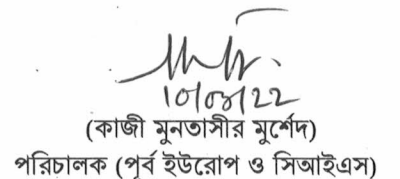 10/03/22
(কাজী মুনতাসীর মুর্শেদ)
পরিচালক (পূর্ব ইউরোপ ও সিআইএস)